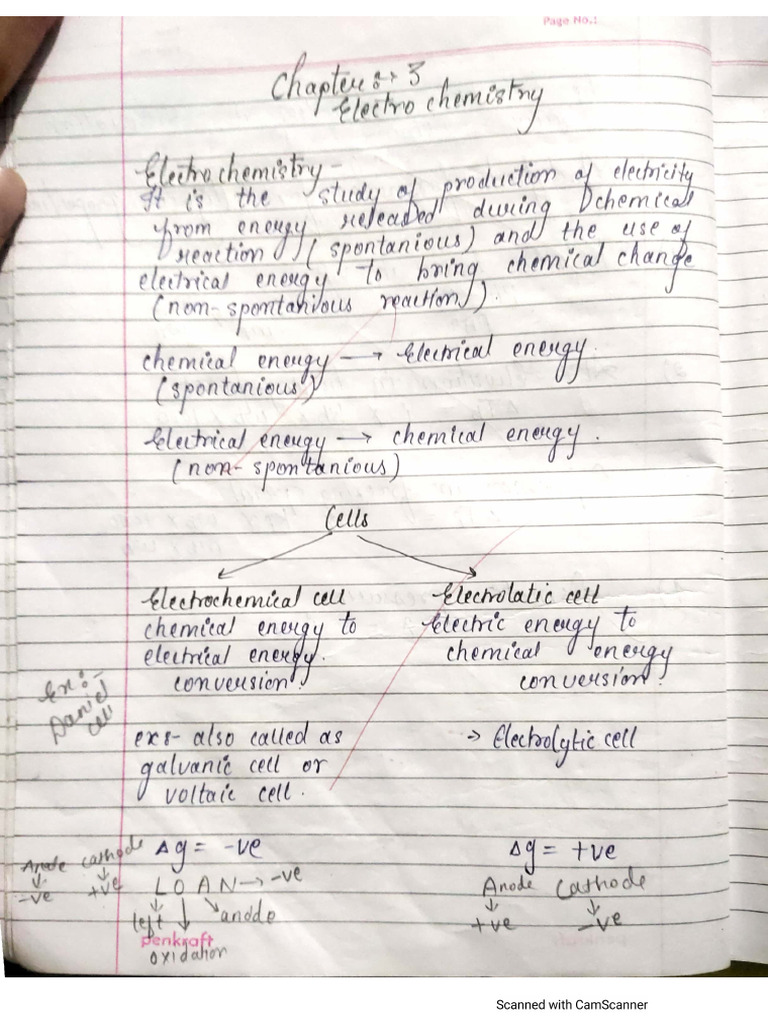 Page No.:
Chapter :- 3
Electro chemistry
Electro chemistry -
It is the study of production of electricity
from energy released during chemical
reaction (spontanious) and the use of
electrical energy to bring chemical change
(non-spontanious reaction).
chemical energy → Electrical energy.
(spontanious)
Electrical energy → chemical energy.
(non-spontanious)
Cells
Electrochemical cell
chemical energy to
electrical energy.
conversion.
Ex:-
Daniel
cell
exs- also called as
galvanic cell or
voltaic cell.
Electrolatic cell
Electric energy to
chemical energy
conversion.
→ Electrolytic cell
Δg = -ve
Anode cathode
↓ ↓
-ve +ve
L O A N → -ve
left
oxidation
anode
Δg = +ve
Anode Cathode
↓ ↓
+ve -ve
penkraft
penkraft
Scanned with CamScanner